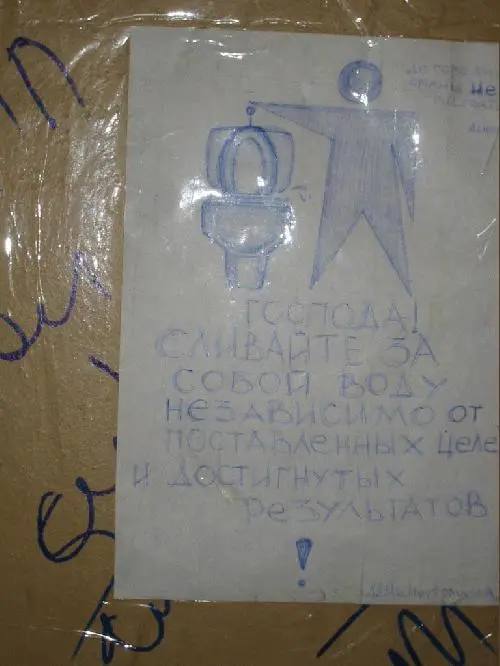 не
ГОСПОДА!
СЛИВАЙТЕ ЗА
СОБОЙ ВОДУ
НЕЗАВИСИМО ОТ
ПОСТАВЛЕННЫХ ЦЕЛЕ
И ДОСТИГНУТЫХ
РЕЗУЛЬТАТОВ
!